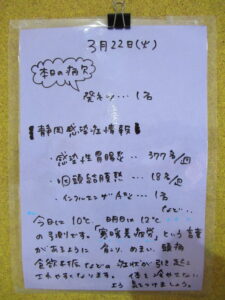 3月22日(火)
本日の病欠
発キツ… 1名
【静岡感染症情報】
・感染性胃腸炎‥377名/週
・咽頭結膜熱‥18名/週
・インフルエンザA型‥1名
など‥
今日は10℃、明日は12℃
の予測です。「寒暖差病」という言葉
があるように 肩こり、めまい、頭痛
食欲不振などの症状が引き起こ
されやすくなります。体を冷やさない
よう 気をつけましょう。